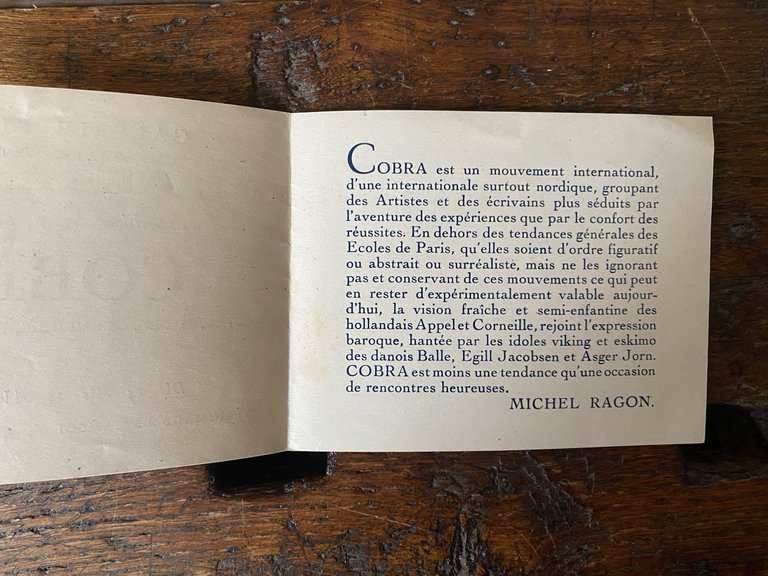 COBRA est un mouvement international,
d'une internationale surtout nordique, groupant
des Artistes et des écrivains plus séduits par
l'aventure des expériences que par le confort des
réussites. En dehors des tendances générales des
Ecoles de Paris, qu'elles soient d'ordre figuratif
ou abstrait ou surréaliste, mais ne les ignorant
pas et conservant de ces mouvements ce qui peut
en rester d'expérimentalement valable aujour-
d'hui, la vision fraîche et semi-enfantine des
hollandais Appel et Corneille, rejoint l'expression
baroque, hantée par les idoles viking et eskimo
des danois Balle, Egill Jacobsen et Asger Jorn.
COBRA est moins une tendance qu'une occasion
de rencontres heureuses.
MICHEL RAGON.